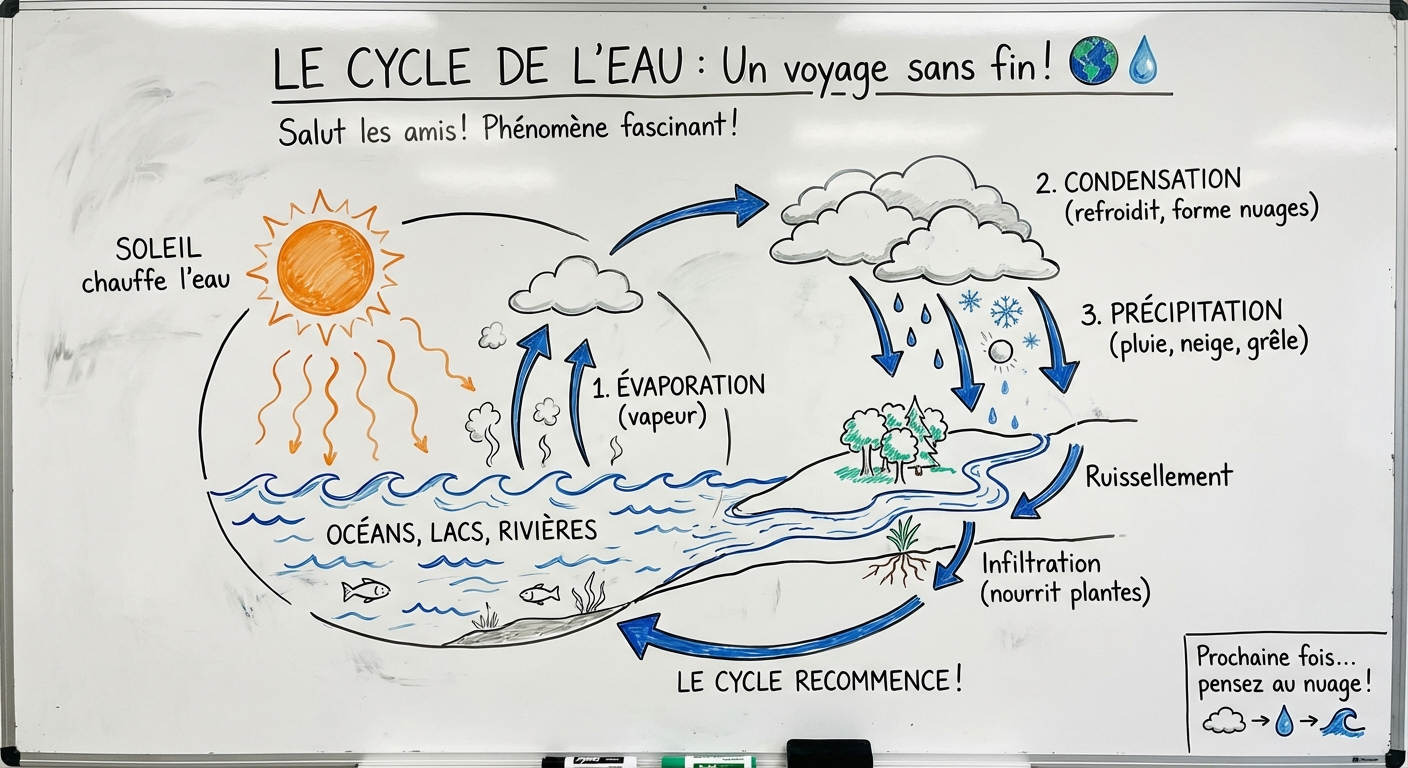 LE CYCLE DE L'EAU : Un voyage sans fin!
Salut les amis! Phénomène fascinant!
SOLEIL
chauffe l'eau
1. ÉVAPORATION
(vapeur)
2. CONDENSATION
(refroidit, forme nuages)
3. PRÉCIPITATION
(pluie, neige, grêle)
Ruissellement
OCÉANS, LACS, RIVIÈRES
Infiltration
(nourrit plantes)
LE CYCLE RECOMMENCE!
Prochaine fois...
pensez au nuage!